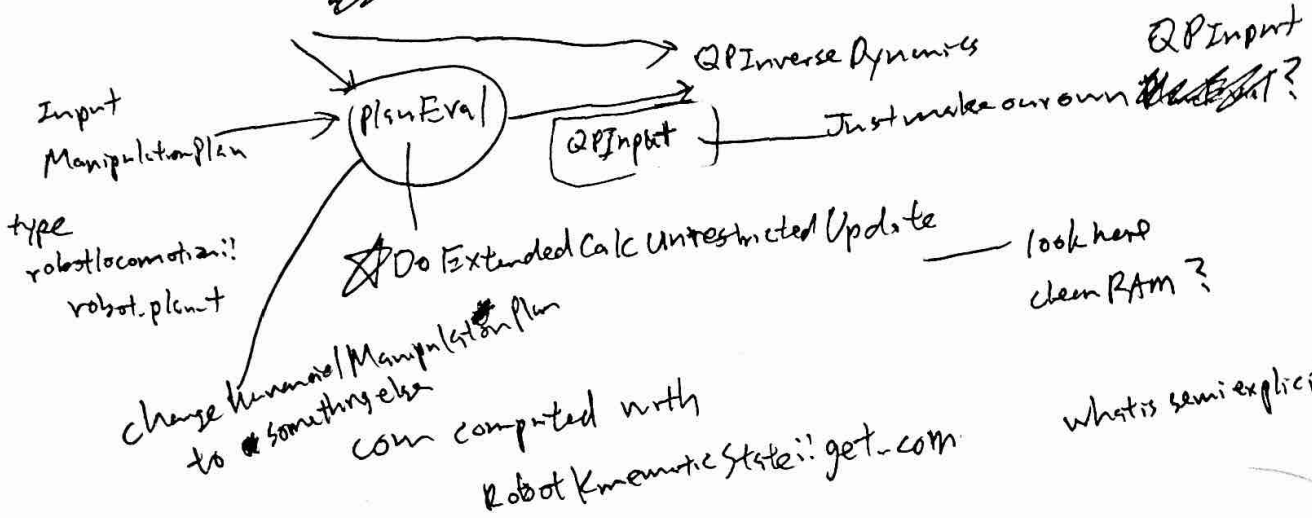 QPInverse Dynamics
QPInput
Input
ManipulationPlan
planEval
QPInput
Just make our own ?
type
robotlocomotion::
robot_plan_t
Do Extended Calc Unrestricted Update
look here
clean RAM ?
change humanoid/ManipulationPlan
to something else
com computed with
Robot Kinematic State:: get_com
what is semi explici